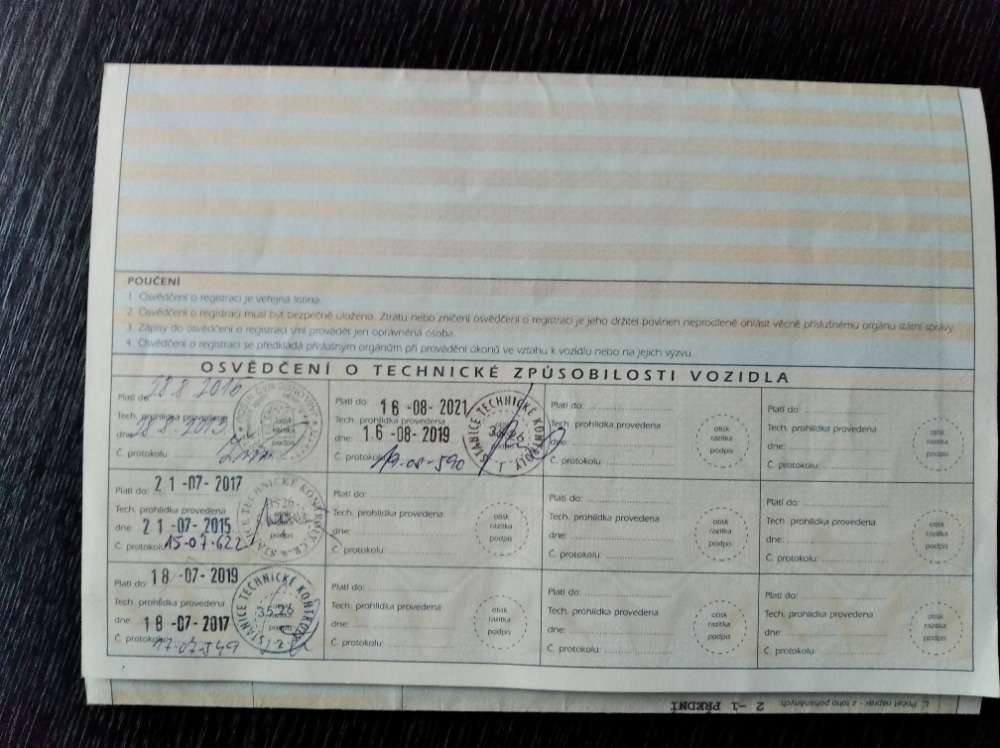 POUČENÍ
1. Osvědčení o registraci je veřejná listina.
2. Osvědčení o registraci musí být bezpečně uloženo. Ztrátu nebo zničení osvědčení o registraci je jeho držitel povinen neprodleně ohlásit věcně příslušnému orgánu státní správy.
3. Zápisy do osvědčení o registraci smí provádět jen oprávněná osoba.
4. Osvědčení o registraci se předkládá příslušným orgánům při provádění úkonů ve vztahu k vozidlu nebo na jejich výzvu.
OSVĚDČENÍ O TECHNICKÉ ZPŮSOBILOSTI VOZIDLA
Platí do: 28.8 2016
Tech. prohlídka provedena
dne: 28 8 2013
Č. protokolu:
Platí do: 16 -08- 2021
Tech. prohlídka provedena
dne: 16 -08- 2019
Č. protokolu: 19-08-590
STANICE TECHNICKÉ KONTROLY
35.26
Platí do:
Tech. prohlídka provedena
dne:
Č. protokolu:
otisk
razítka
podpis
Platí do:
Tech. prohlídka provedena
dne:
Č. protokolu:
otisk
razítka
podpis
Platí do: 21 -07- 2017
Tech. prohlídka provedena
dne: 21 -07- 2015
Č. protokolu: 15-07-622
STANICE TECHNICKÉ KONTROLY
35.26
Platí do:
Tech. prohlídka provedena
dne:
Č. protokolu:
otisk
razítka
podpis
Platí do:
Tech. prohlídka provedena
dne:
Č. protokolu:
otisk
razítka
podpis
Platí do:
Tech. prohlídka provedena
dne:
Č. protokolu:
otisk
razítka
podpis
Platí do: 18 -07- 2019
Tech. prohlídka provedena
dne: 18 -07- 2017
Č. protokolu: 17-07-549
STANICE TECHNICKÉ KONTROLY
35.26
2
Platí do:
Tech. prohlídka provedena
dne:
Č. protokolu:
otisk
razítka
podpis
Platí do:
Tech. prohlídka provedena
dne:
Č. protokolu:
otisk
razítka
podpis
Platí do:
Tech. prohlídka provedena
dne:
Č. protokolu:
otisk
razítka
podpis
Počet náprav - z toho poháněných 2 -1 PŘEDNÍ